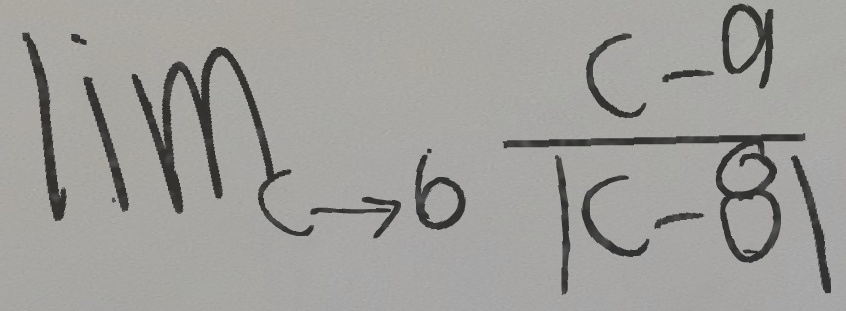 lim_{c→6} \frac{c-9}{|c-8|}